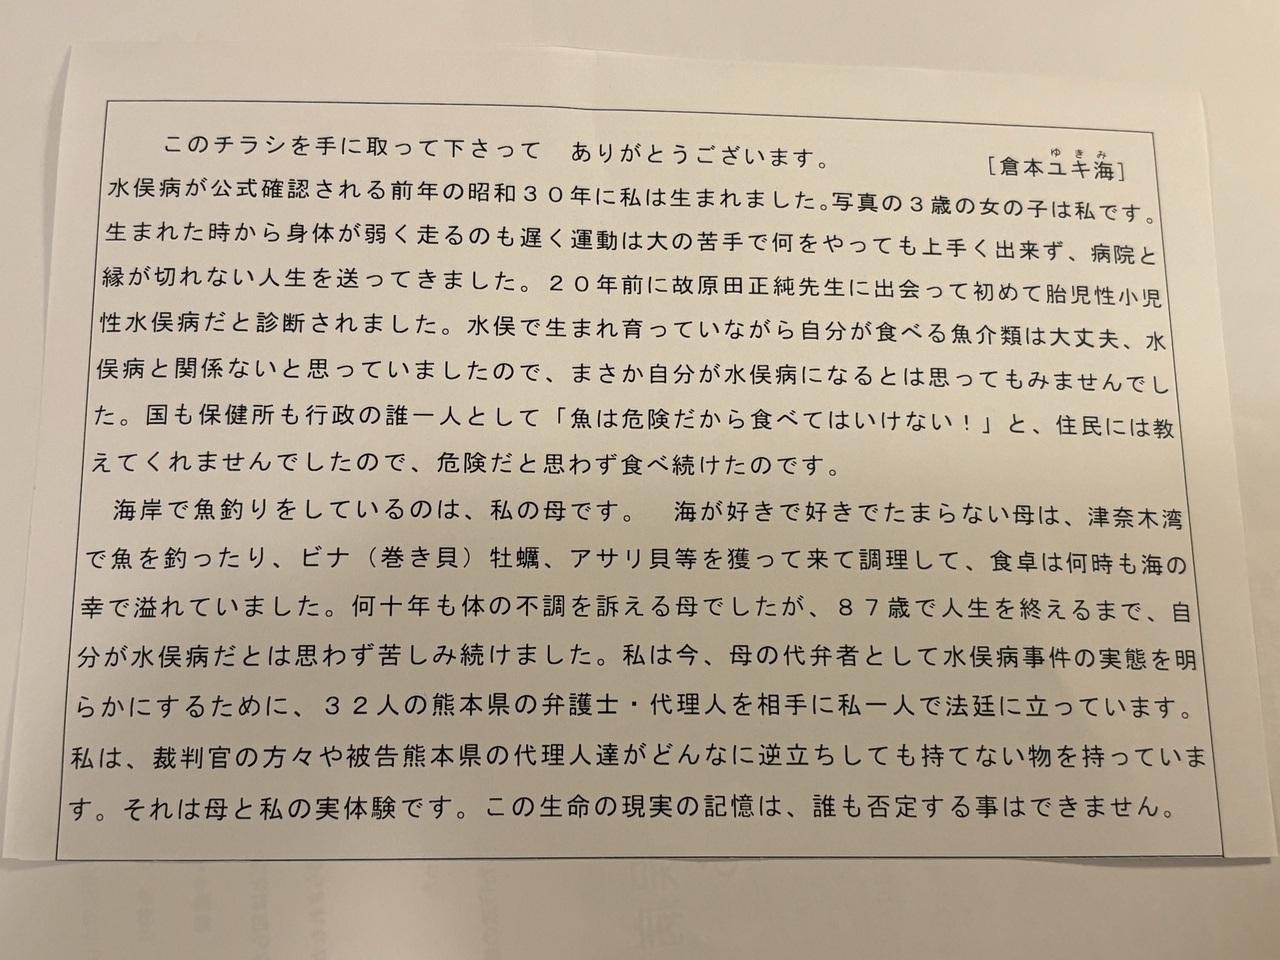 このチラシを手に取って下さって　ありがとうございます。　　　　　　[倉本ユキ海]
ゆきみ
水俣病が公式確認される前年の昭和３０年に私は生まれました。写真の３歳の女の子は私です。
生まれた時から身体が弱く走るのも遅く運動は大の苦手で何をやっても上手く出来ず、病院と
縁が切れない人生を送ってきました。２０年前に故原田正純先生に出会って初めて胎児性小児
性水俣病だと診断されました。水俣で生まれ育っていながら自分が食べる魚介類は大丈夫、水
俣病と関係ないと思っていましたので、まさか自分が水俣病になるとは思ってもみませんでし
た。国も保健所も行政の誰一人として「魚は危険だから食べてはいけない！」と、住民には教
えてくれませんでしたので、危険だと思わず食べ続けたのです。
海岸で魚釣りをしているのは、私の母です。　海が好きで好きでたまらない母は、津奈木湾
で魚を釣ったり、ビナ（巻き貝）牡蠣、アサリ貝等を獲って来て調理して、食卓は何時も海の
幸で溢れていました。何十年も体の不調を訴える母でしたが、８７歳で人生を終えるまで、自
分が水俣病だとは思わず苦しみ続けました。私は今、母の代弁者として水俣病事件の実態を明
らかにするために、３２人の熊本県の弁護士・代理人を相手に私一人で法廷に立っています。
私は、裁判官の方々や被告熊本県の代理人達がどんなに逆立ちしても持てない物を持っていま
す。それは母と私の実体験です。この生命の現実の記憶は、誰も否定する事はできません。